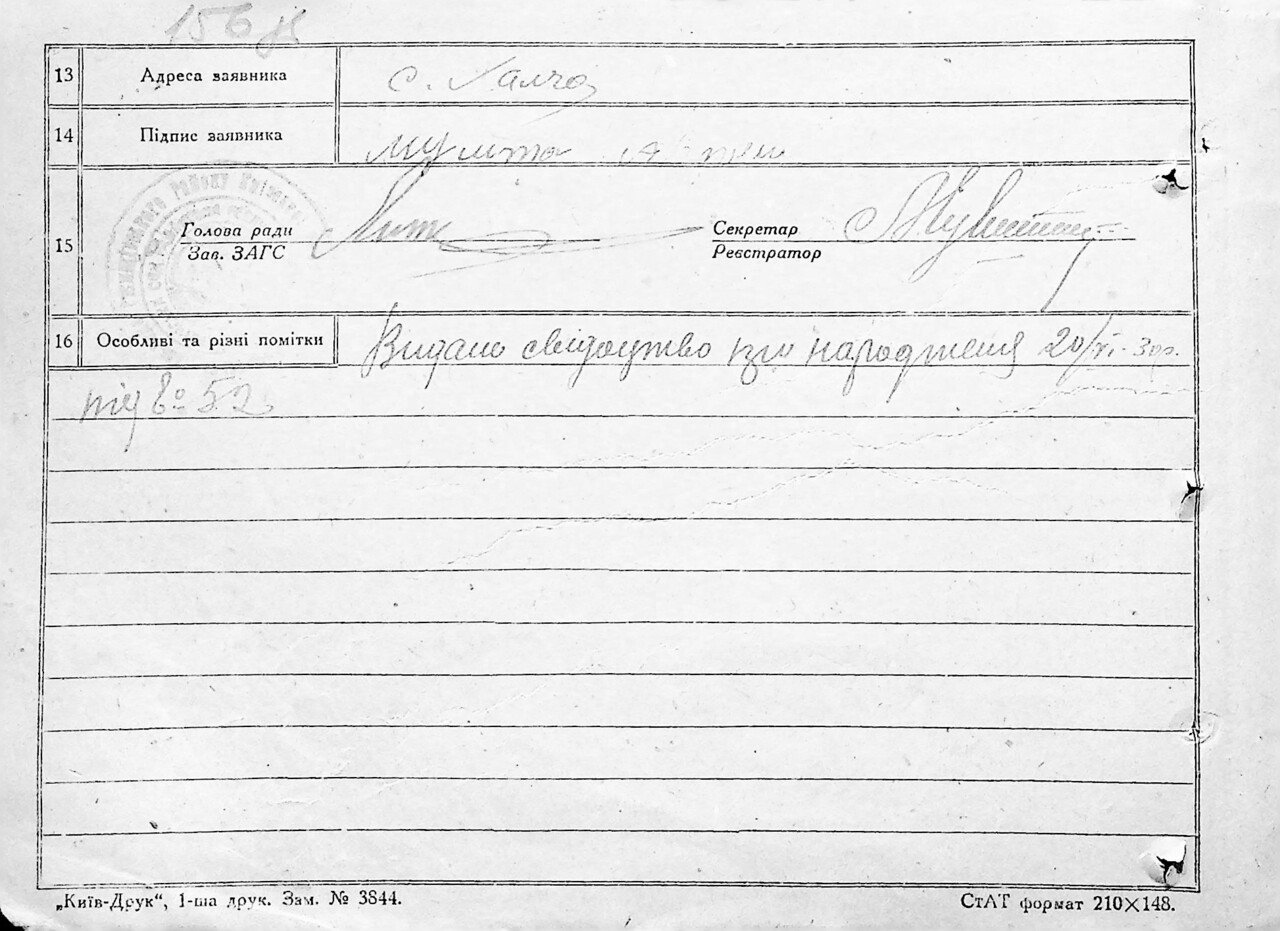 156
13 Адреса заявника с. Халча
14 Підпис заявника
15 Голова ради
Зав. ЗАГС
Секретар
Реєстратор
16 Особливі та різні помітки Видано свідоцтво про народженя 20/VI-30р.
під № 52
„Київ-Друк“, 1-ша друк. Зам. № 3844.
СтАТ формат 210×148.